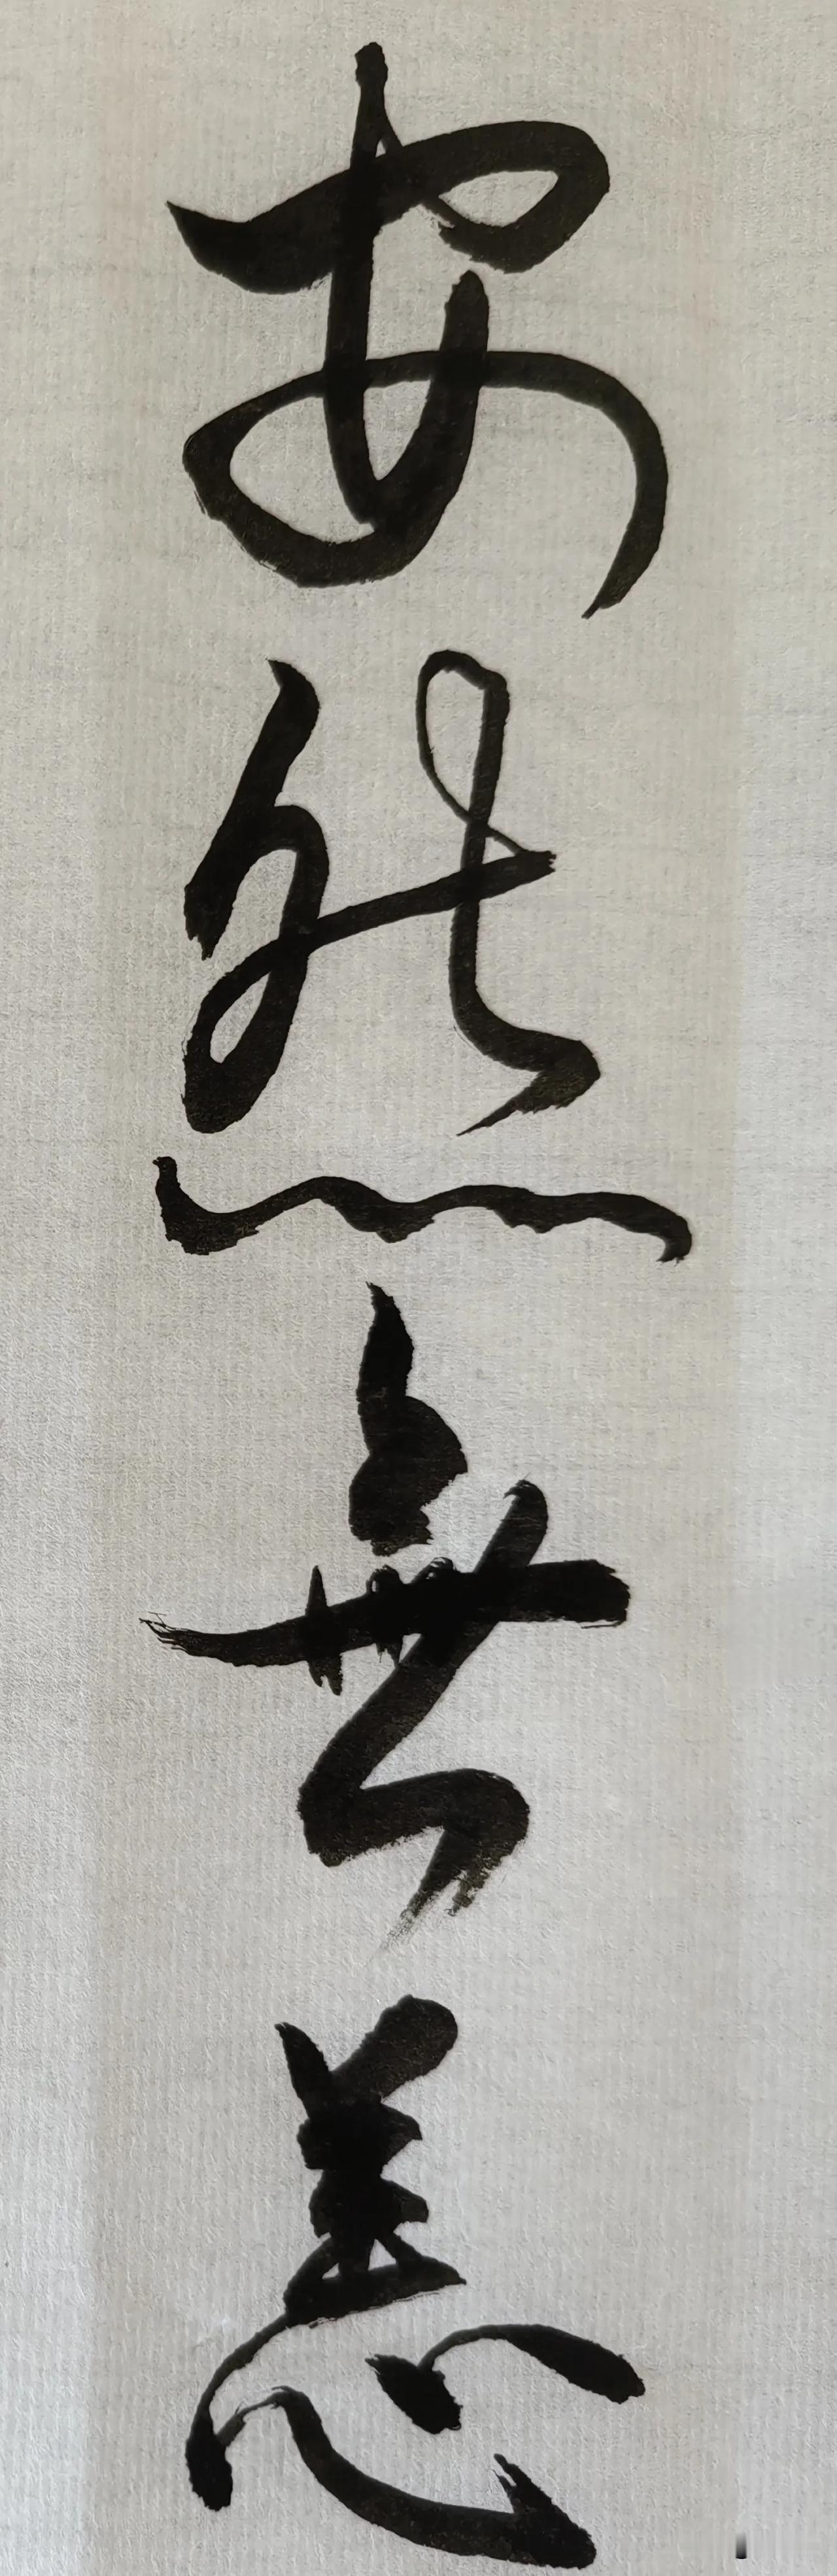 安然無恙